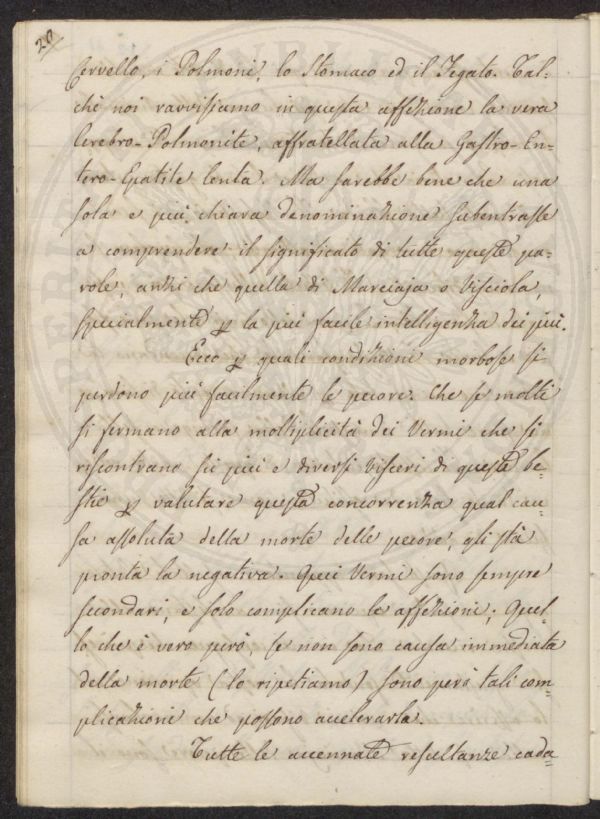 20
Cervello, i Polmoni, lo Stomaco ed il Fegato. Tal=
chè noi ravvisiamo in questa affezione la vera
Cerebro-Polmonite, affratellata alla Gastro-En=
tero-Epatite lenta. Ma sarebbe bene che una
sola e più chiara denominazione subentrasse
a comprendere il significato di tutte queste pa=
role, anzi che quella di Marciaja o Visciola,
specialmente p la più facile intelligenza dei più.
Ecco p quali condizioni morbose si
perdono più facilmente le pecore. Che se molti
si fermano alla moltiplicità dei Vermi che si
riscontrano su più e diversi visceri di queste be=
stie p valutare questa concorrenza qual cau=
sa assoluta della morte delle pecore, gli stà
pronta la negativa. Quei Vermi sono sempre
secondari, e solo complicano le affezioni; Quel=
lo che è vero però, se non sono causa immediata
della morte (lo ripetiamo) sono però tali com=
plicazioni che possono accelerarla.
Tutte le accennate resultanze cada=